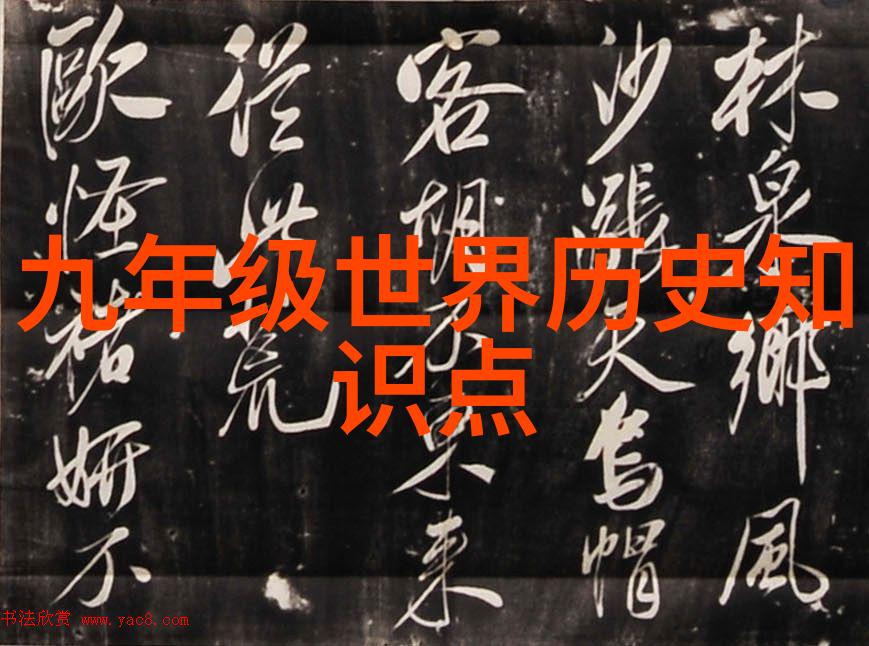 林泉鄉風
沙漲天烏帽
客胡不來
從荒
歐怪褚妍不
九年级世界历史知
识点
书法欣赏 www.yac8.com